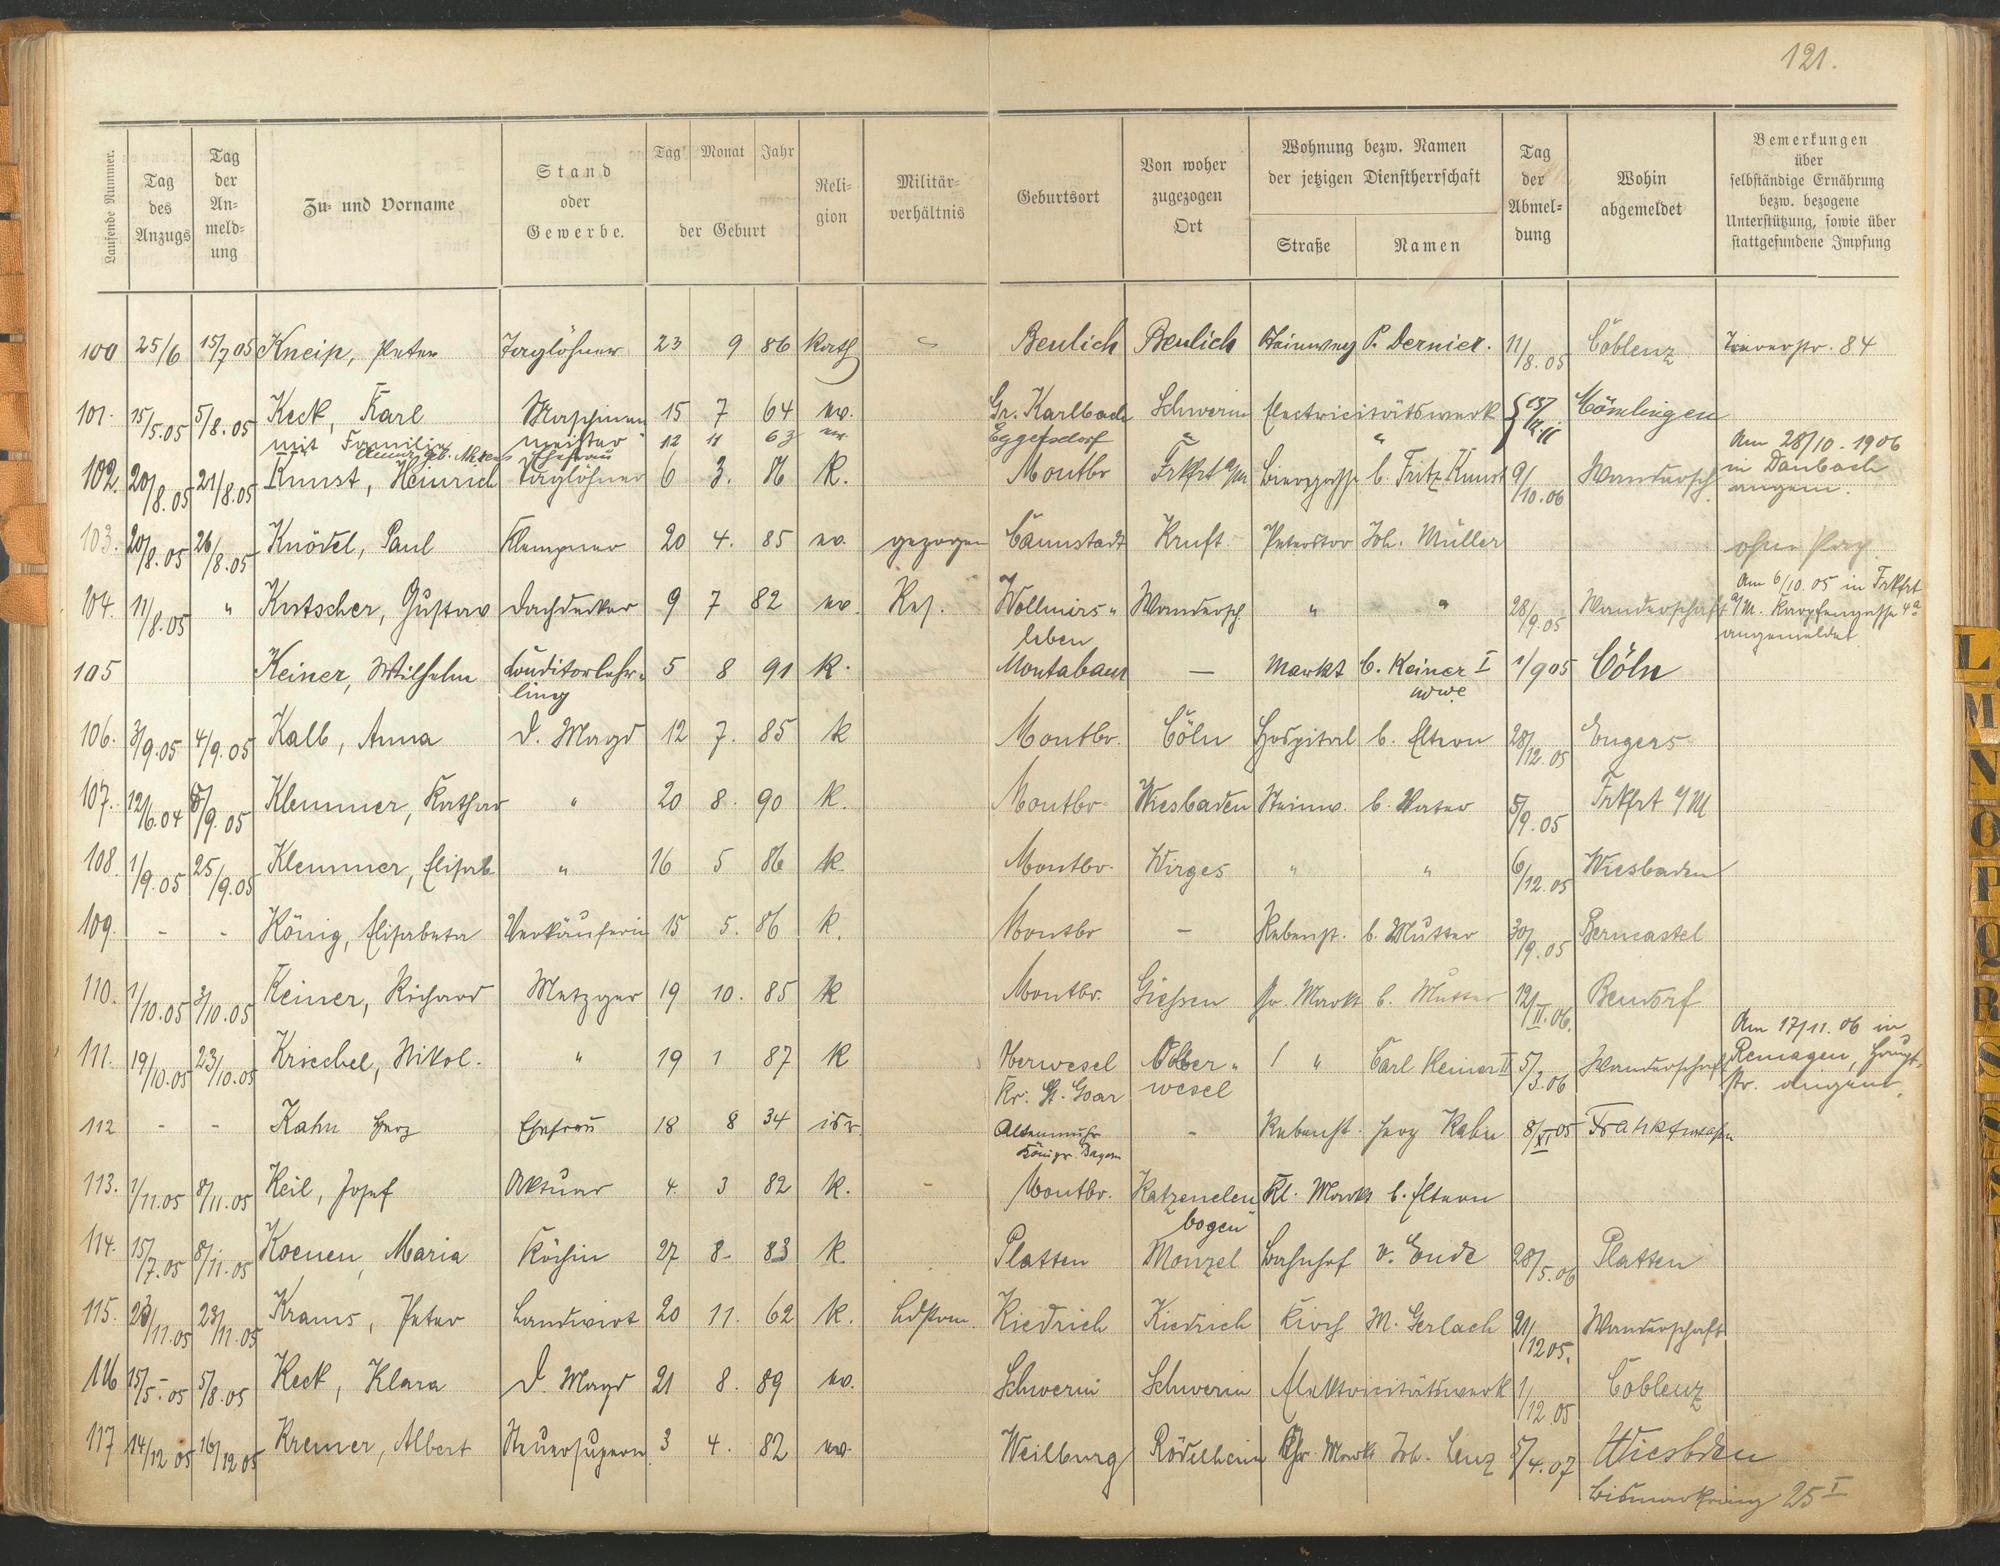 121.
Laufende Nummer.
Tag des Anzugs
Tag der An- meld- ung
Zu- und Vorname
Stand oder Gewerbe.
Tag Monat Jahr
der Geburt
Reli- gion
Militär- verhältnis
Geburtsort
Von woher zugezogen Ort
Wohnung bezw. Namen der jetzigen Dienstherrschaft
Straße
Namen
Tag der Abmel- dung
Wohin abgemeldet
Bemerkungen über selbständige Ernährung bezw. bezogene Unterstützung, sowie über stattgefundene Impfung
100 25/6 15/7 05 Kneip, Peter Taglöhner 23 9 86 Kath Beulich Beulich Steinweg P. Dernier. 11/8.05 Coblenz 84
101. 15/5.05 5/8.05 Keck, Karl Maschinen 15 7 64 ev. Gr. Karlbach Schwerin Electricitätswerk
mit Familie meister 12 11 63 ev Eggersdorf " "
Ehefrau
Am 28/10. 1906
102. 20/8.05 21/8.05 Kunst, Heinrich Taglöhner 6 3. 86 K. Montbr Frkfrt a/M Biergasse b. Fritz Kunst 9/10.06 Wandersch. in Daubach
angem.
103. 20/8.05 26/8.05 Knödel, Paul Klempner 20 4. 85 ev. gezogen Cannstadt Kruft Peterstor Joh. Müller
Am 6/10.05 in Frkfrt
104. 11/8.05 " Kutscher, Gustav Dachdecker 9 7 82 ev. Res. Wollmirs- Wandersch. " " 28/9.05 Wanderschaft a/M. Karpfengasse 4a
leben angemeldet
105 Keiner, Wilhelm Conditorlehr- 5 8 91 K. Montabaur — Markt C. Keiner I 1/9 05 Cöln
ling
106. 3/9.05 4/9.05 Kalb, Anna D. Magd 12 7. 85 K Montbr. Cöln Hospital b. Eltern 28/12.05 Engers
107. 12/6.04 5/9.05 Klemmer, Kathar " 20 8. 90 K. Montbr. Wiesbaden Steinw. b. Vater 5/9.05 Frkfrt a/M
108. 1/9.05 25/9.05 Klemmer, Elisab " 16 5 86 K. Montbr. Wirges " " 6/12.05 Wiesbaden
109. - - König, Elisabeta Verkäuferin 15 5. 86 K. Montbr — Rebenst. b. Mutter 30/9.05 Berncastel
110. 1/10.05 3/10.05 Keiner, Richard Metzger 19 10. 85 K Montbr. Giessen Gr. Markt b. Mutter 12/II.06. Bendorf
Am 17/11.06 in
111. 19/10.05 23/10.05 Kriechel, Nikol. " 19 1 87 K Oberwesel Ober- " Carl Keiner II 5/3.06 Wanderschaft Remagen, Haupt-
Kr. St. Goar wesel str. angem.
112 - - Kahn Herz Ehefrau 18 8 34 isr. Altenmuhr - Rebenst. Herz Kahn 8/XI 05
Königr. Bayern
113. 1/11.05 8/11.05 Keil, Josef Aktuar 4. 3 82 K. - Montbr. Katzenelen Kl. Markt b. Eltern
bogen
114. 15/7.05 8/11.05 Koenen, Maria Köchin 27 8- 83 K Platten Monzel Bahnhof v. Ende 28/5.06 Platten
115. 23/11.05 23/11.05 Krams, Peter Landwirt 20 11. 62 K. Ldstrm. Kiedrich Kiedrich Kirch M. Gerlach 21/12 05. Wanderschaft
116 15/5.05 5/8.05 Keck, Klara D. Magd 21 8. 89 ev. Schwerin Schwerin Elektricitätswerk 1/12.05 Coblenz
117 14/12 05 16/12 05 Kremer, Albert Steuersupern. 3 4. 82 ev. Weilburg Rödelheim Gr. Markt Joh. Lenz 5/4.07 Wiesbden
Bismarkring 25 I
L
M
N
O
P
Q
R
S